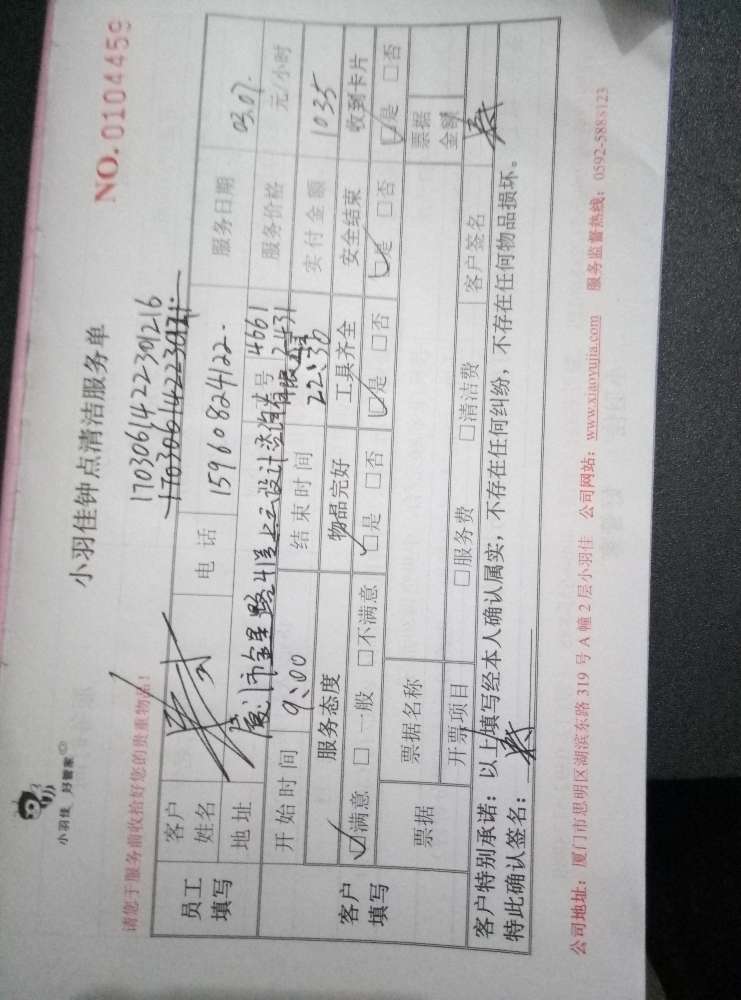 小羽佳 好管家
小羽佳钟点清洁服务单
NO. 0104459
请您于服务前收拾好您的贵重物品!
17030614222391216
员工填写
客户姓名
电话 15960824122
服务日期 03.07.
地址 厦门市金星路41号 设计咨询有限
卡号 4661 2431
服务价格 元/小时
开始时间 9:00
结束时间 22:30
实付金额 1035
客户填写
服务态度 物品完好 工具齐全 安全结束 收到卡片
☑满意 □一般 □不满意 ☑是 □否 ☑是 □否 ☑是 □否 ☑是 □否
票据 票据名称 票据金额
开票项目 □服务费 □清洁费 客户签名
客户特别承诺:以上填写经本人确认属实,不存在任何纠纷,不存在任何物品损坏。
特此确认签名:
公司地址:厦门市思明区湖滨东路 319 号 A 幢 2 层小羽佳 公司网站:www.xiaoyujia.com 服务监督热线:0592-5888123